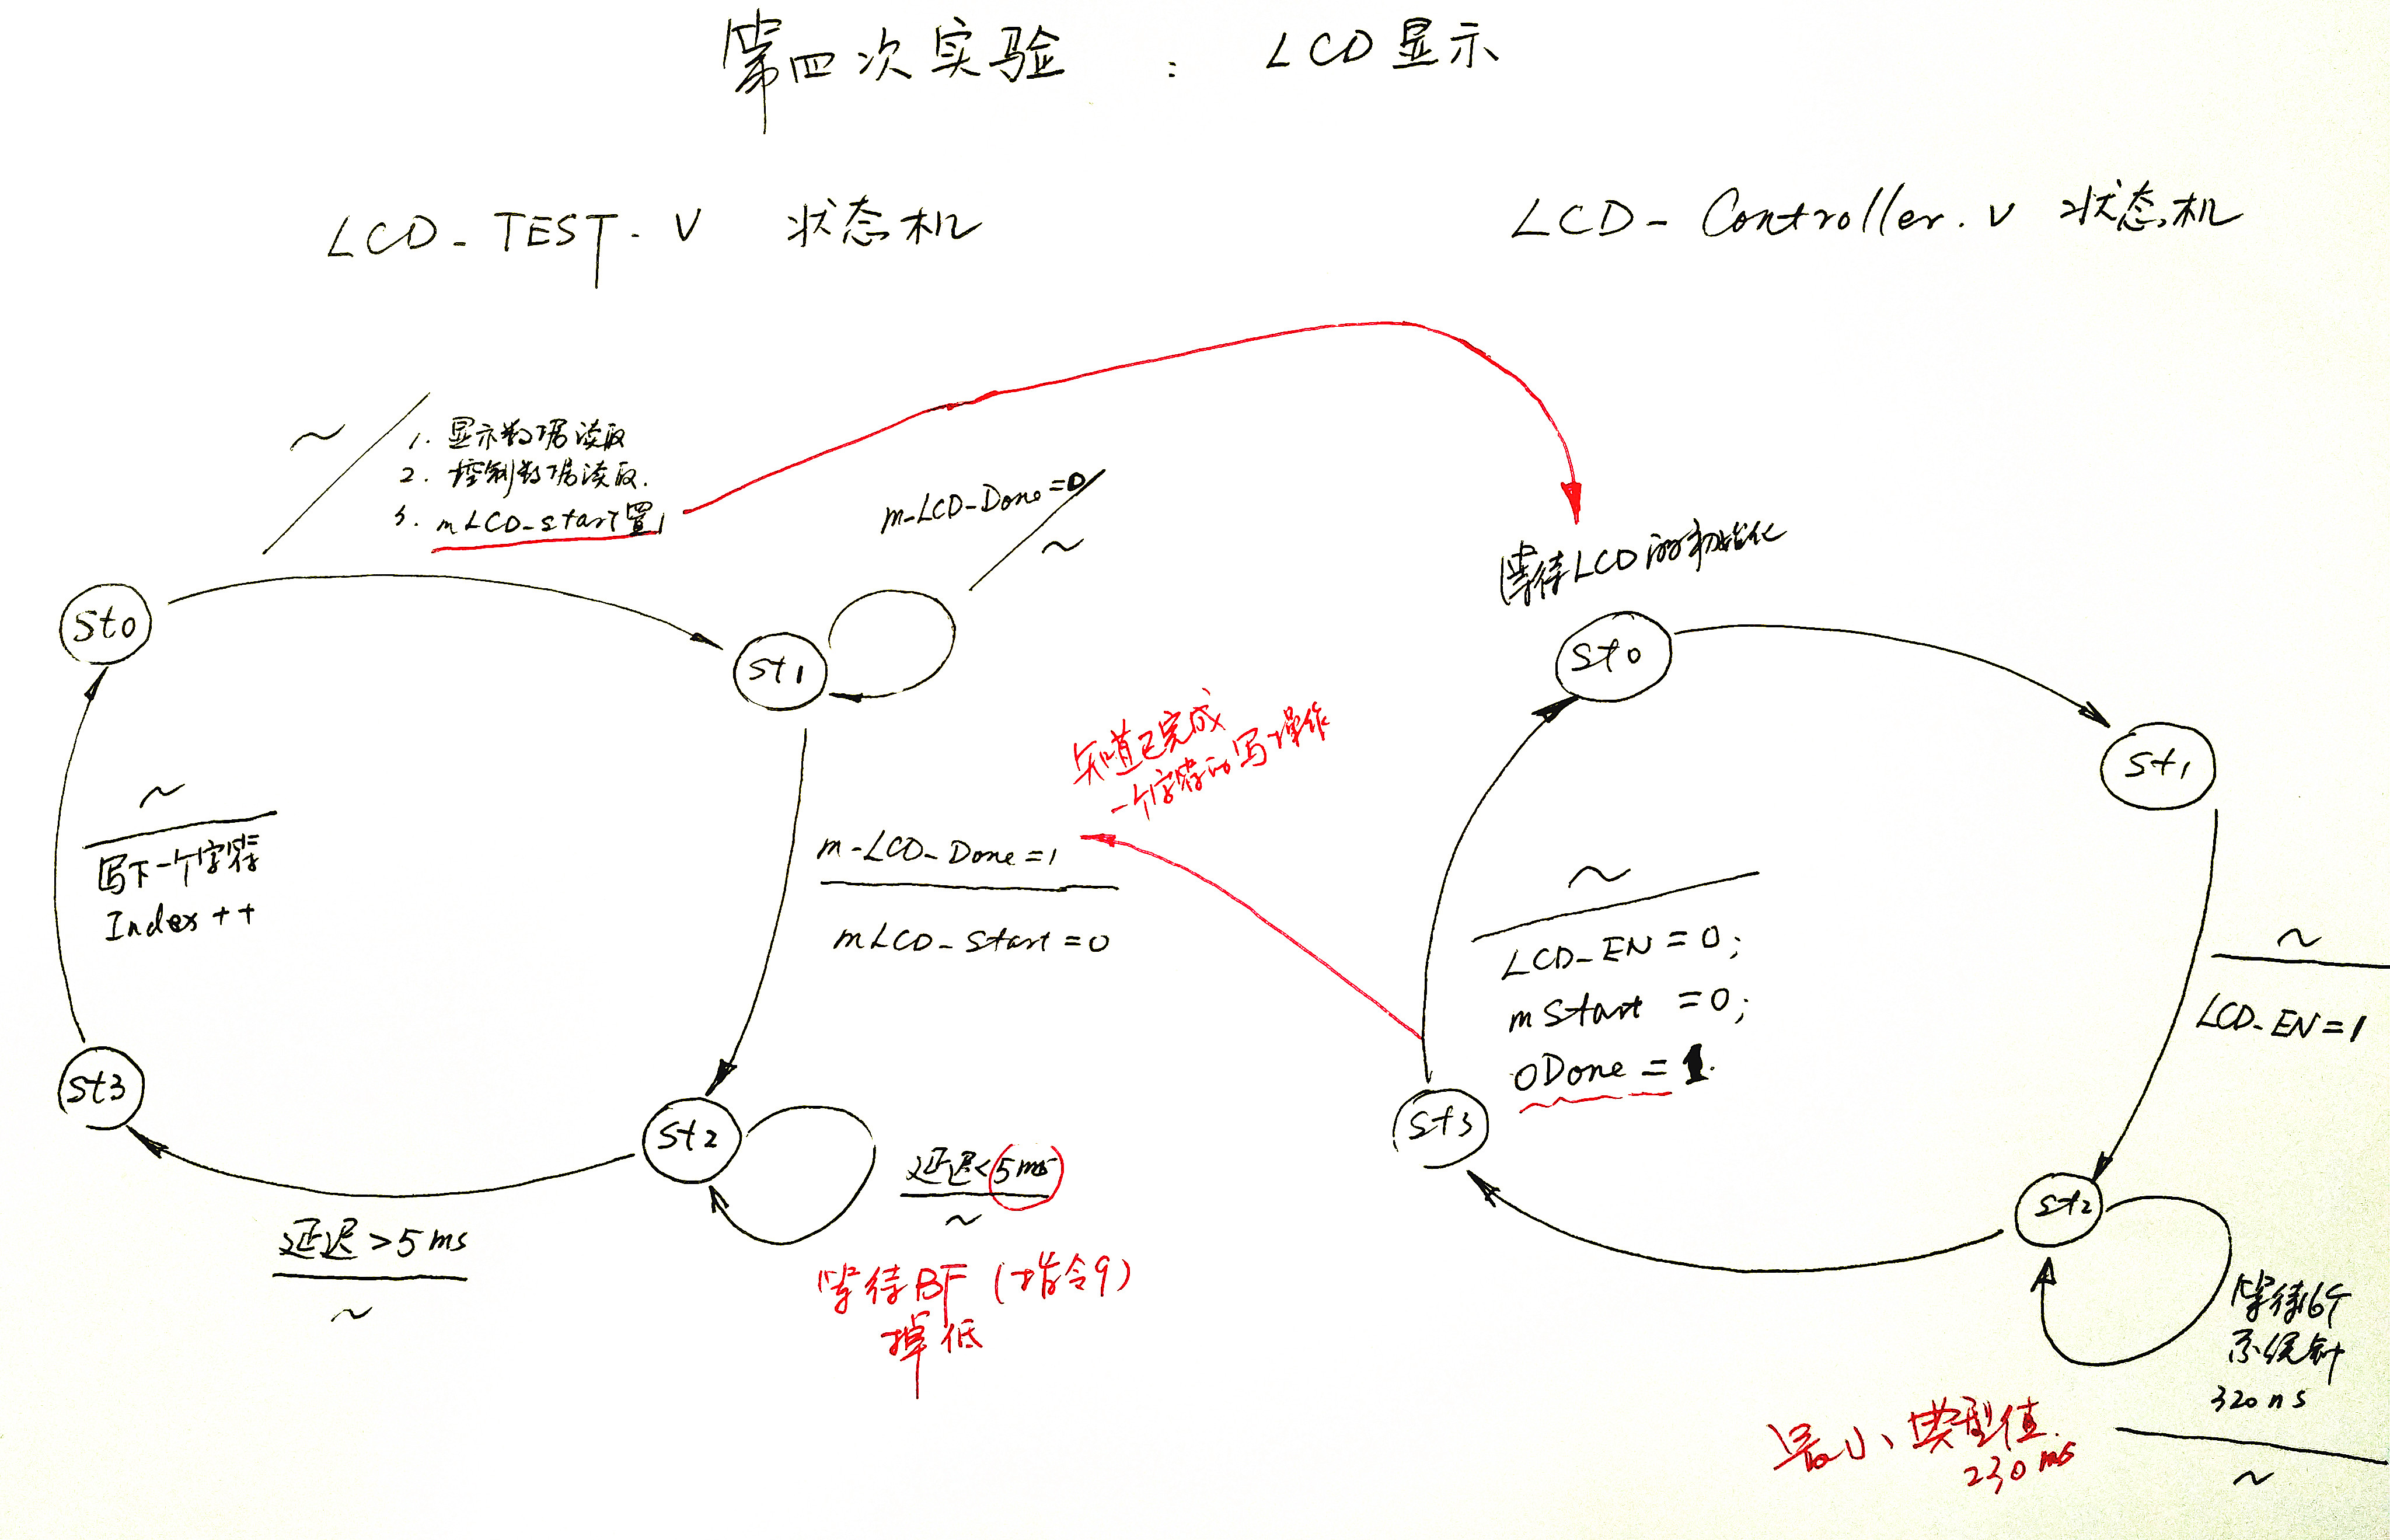 第四次实验 : LCD显示
LCD-TEST.V 状态机
LCD-Controller.v 状态机
~
1. 显示数据读取
2. 控制数据读取.
3. mLCD-start置1
m-LCD-Done=0
~
等待LCD的初始化
st0
st1
st0
st1
知道已完成
一个字符的写操作
~
写下一个字符
Index++
m-LCD-Done=1
mLCD-Start=0
~
LCD-EN=0;
mStart=0;
oDone=1.
~
LCD-EN=1
st3
st2
st3
st2
延迟<5ms
~
延迟>5ms
~
等待BF(指令9)
掉低
等待16个
系统钟
320ns
~
最小典型值.
230ns